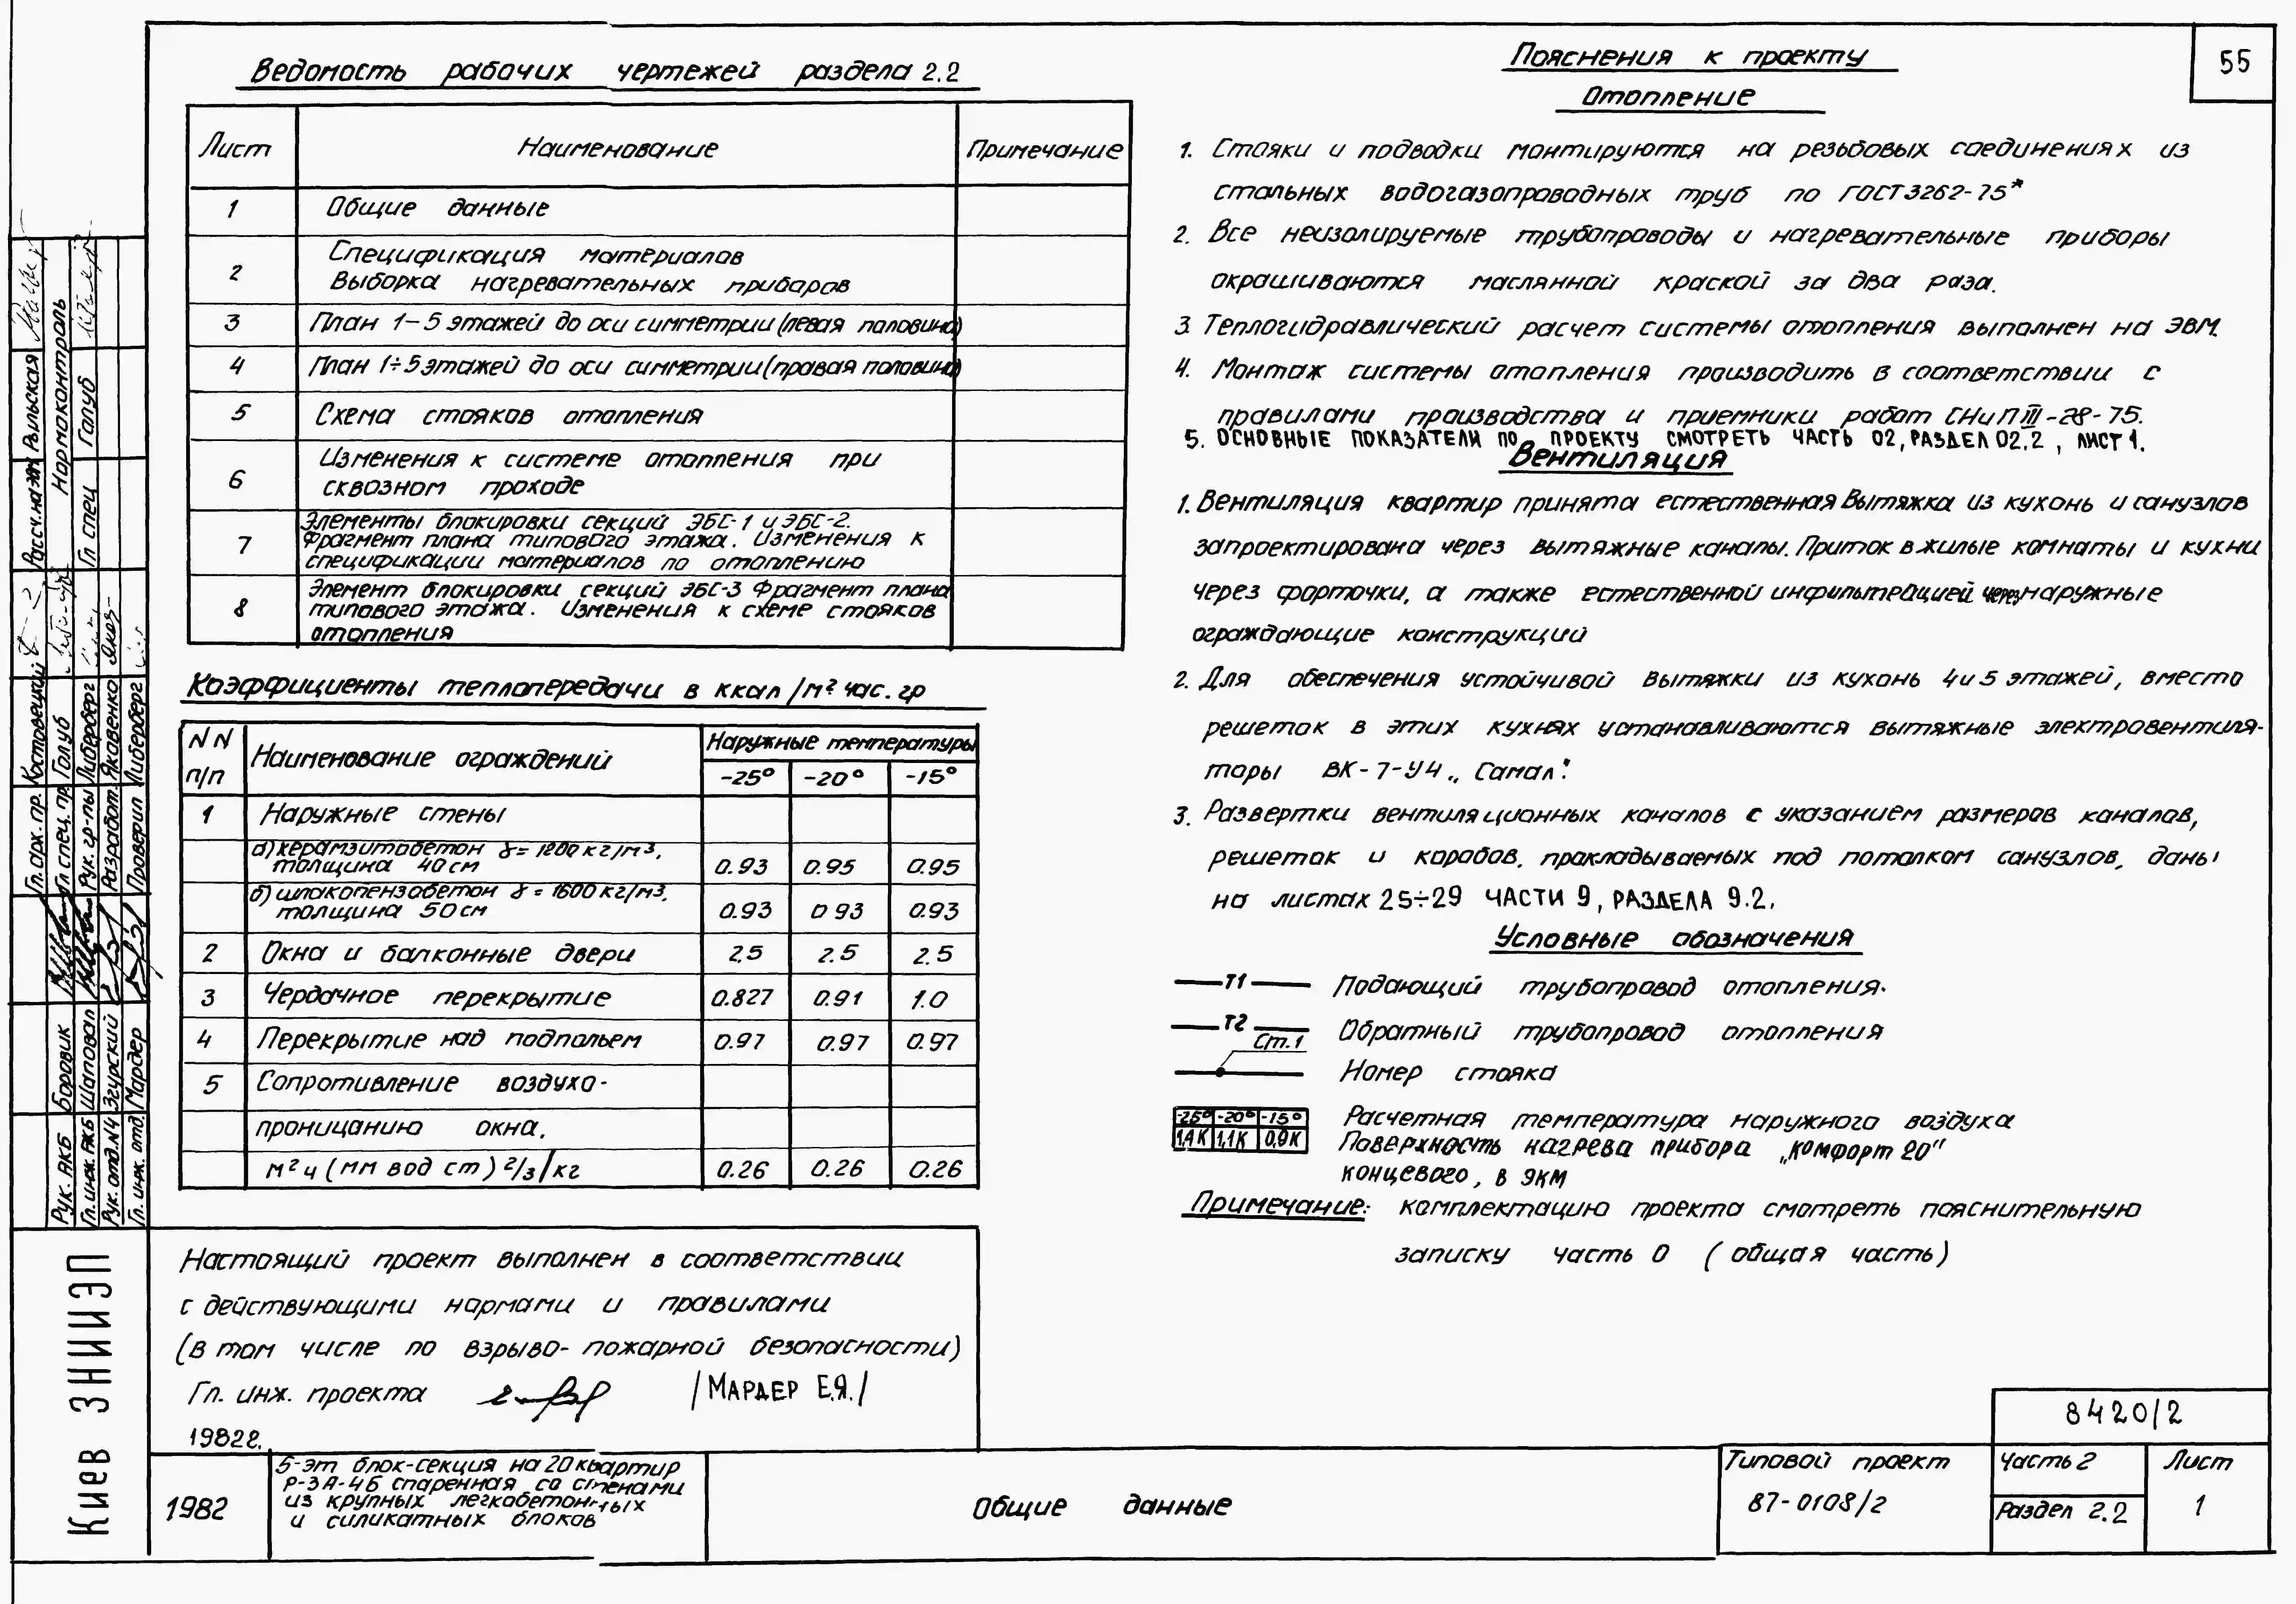 55
Ведомость рабочих чертежей раздела 2.2
Лист Наименование Примечание
1 Общие данные
2 Спецификация материалов
Выборка нагревательных приборов
3 План 1–5 этажей до оси симметрии (левая половина)
4 План 1÷5 этажей до оси симметрии (правая половина)
5 Схема стояков отопления
6 Изменения к системе отопления при
сквозном проходе
7 Элементы блокировки секций ЭБС-1 и ЭБС-2.
Фрагмент плана типового этажа. Изменения к
спецификации материалов по отоплению
8 Элемент блокировки секций ЭБС-3 Фрагмент плана
типового этажа. Изменения к схеме стояков
отопления
Коэффициенты теплопередачи в ккал/м² час. гр
NN п/п Наименование ограждений Наружные температуры
-25° -20° -15°
1 Наружные стены
а) керамзитобетон γ = 1200 кг/м³,
толщина 40 см 0.93 0.95 0.95
б) шлакопензобетон γ = 1600 кг/м³,
толщина 50 см 0.93 0 93 0.93
2 Окна и балконные двери 2.5 2.5 2.5
3 Чердачное перекрытие 0.827 0.91 1.0
4 Перекрытие над подпольем 0.97 0.97 0.97
5 Сопротивление воздухо-
проницанию окна,
м² ч (мм вод ст) 2/3/кг 0.26 0.26 0.26
Настоящий проект выполнен в соответствии
с действующими нормами и правилами
(в том числе по взрыво-пожарной безопасности)
Гл. инж. проекта /Мардер Е.Я./
1982г.
Пояснения к проекту
Отопление
1. Стояки и подводки монтируются на резьбовых соединениях из
стальных водогазопроводных труб по ГОСТ 3262-75*
2. Все неизолируемые трубопроводы и нагревательные приборы
окрашиваются маслянной краской за два раза.
3. Теплогидравлический расчет системы отопления выполнен на ЭВМ.
4. Монтаж системы отопления производить в соответствии с
правилами производства и приемники работ СНиП III-28-75.
5. ОСНОВНЫЕ ПОКАЗАТЕЛИ ПО ПРОЕКТУ СМОТРЕТЬ ЧАСТЬ 02, РАЗДЕЛ 02.2, ЛИСТ 1.
Вентиляция
1. Вентиляция квартир принята естественная Вытяжка из кухонь и санузлов
запроектирована через вытяжные каналы. Приток в жилые комнаты и кухни
через форточки, а также естественной инфильтрацией через наружные
ограждающие конструкций
2. Для обеспечения устойчивой вытяжки из кухонь 4 и 5 этажей, вместо
решеток в этих кухнях устанавливаются вытяжные электровентиля-
торы ВК-7-У4 „Самал".
3. Развертки вентиляционных каналов с указанием размеров каналов,
решеток и коробов, прокладываемых под потолком санузлов, даны
на листах 25÷29 ЧАСТИ 9, РАЗДЕЛА 9.2.
Условные обозначения
Т1 Подающий трубопровод отопления.
Т2 Обратный трубопровод отопления
Ст.1 Номер стояка
-25° -20° -15° Расчетная температура наружного воздуха
1,4К 1,1К 0,9К Поверхность нагрева прибора „Комфорт 20"
концевого, в ЭКМ
Примечание: комплектацию проекта смотреть пояснительную
записку часть 0 (общая часть)
8420/2
1982
5-эт блок-секция на 20 квартир
Р-3А-4Б спаренная со стенами
из крупных легкобетонных
и силикатных блоков
Общие данные
Типовой проект
87-0108/2
Часть 2
Раздел 2.2
Лист
1
Киев ЗНИИЭП
Рук. АКБ Боровик
Гл. инж. АКБ Шаповал
Рук. отд. N4 Згурский
Гл. инж. отд. Мардер
Гл. арх. пр. Костовецкий
Гл. спец. пр. Голуб
Рук. гр-пы Либерберг
Разработ. Яковенко
Проверил Либерберг
Рыльская
Нормоконтроль
Гл спец Голуб